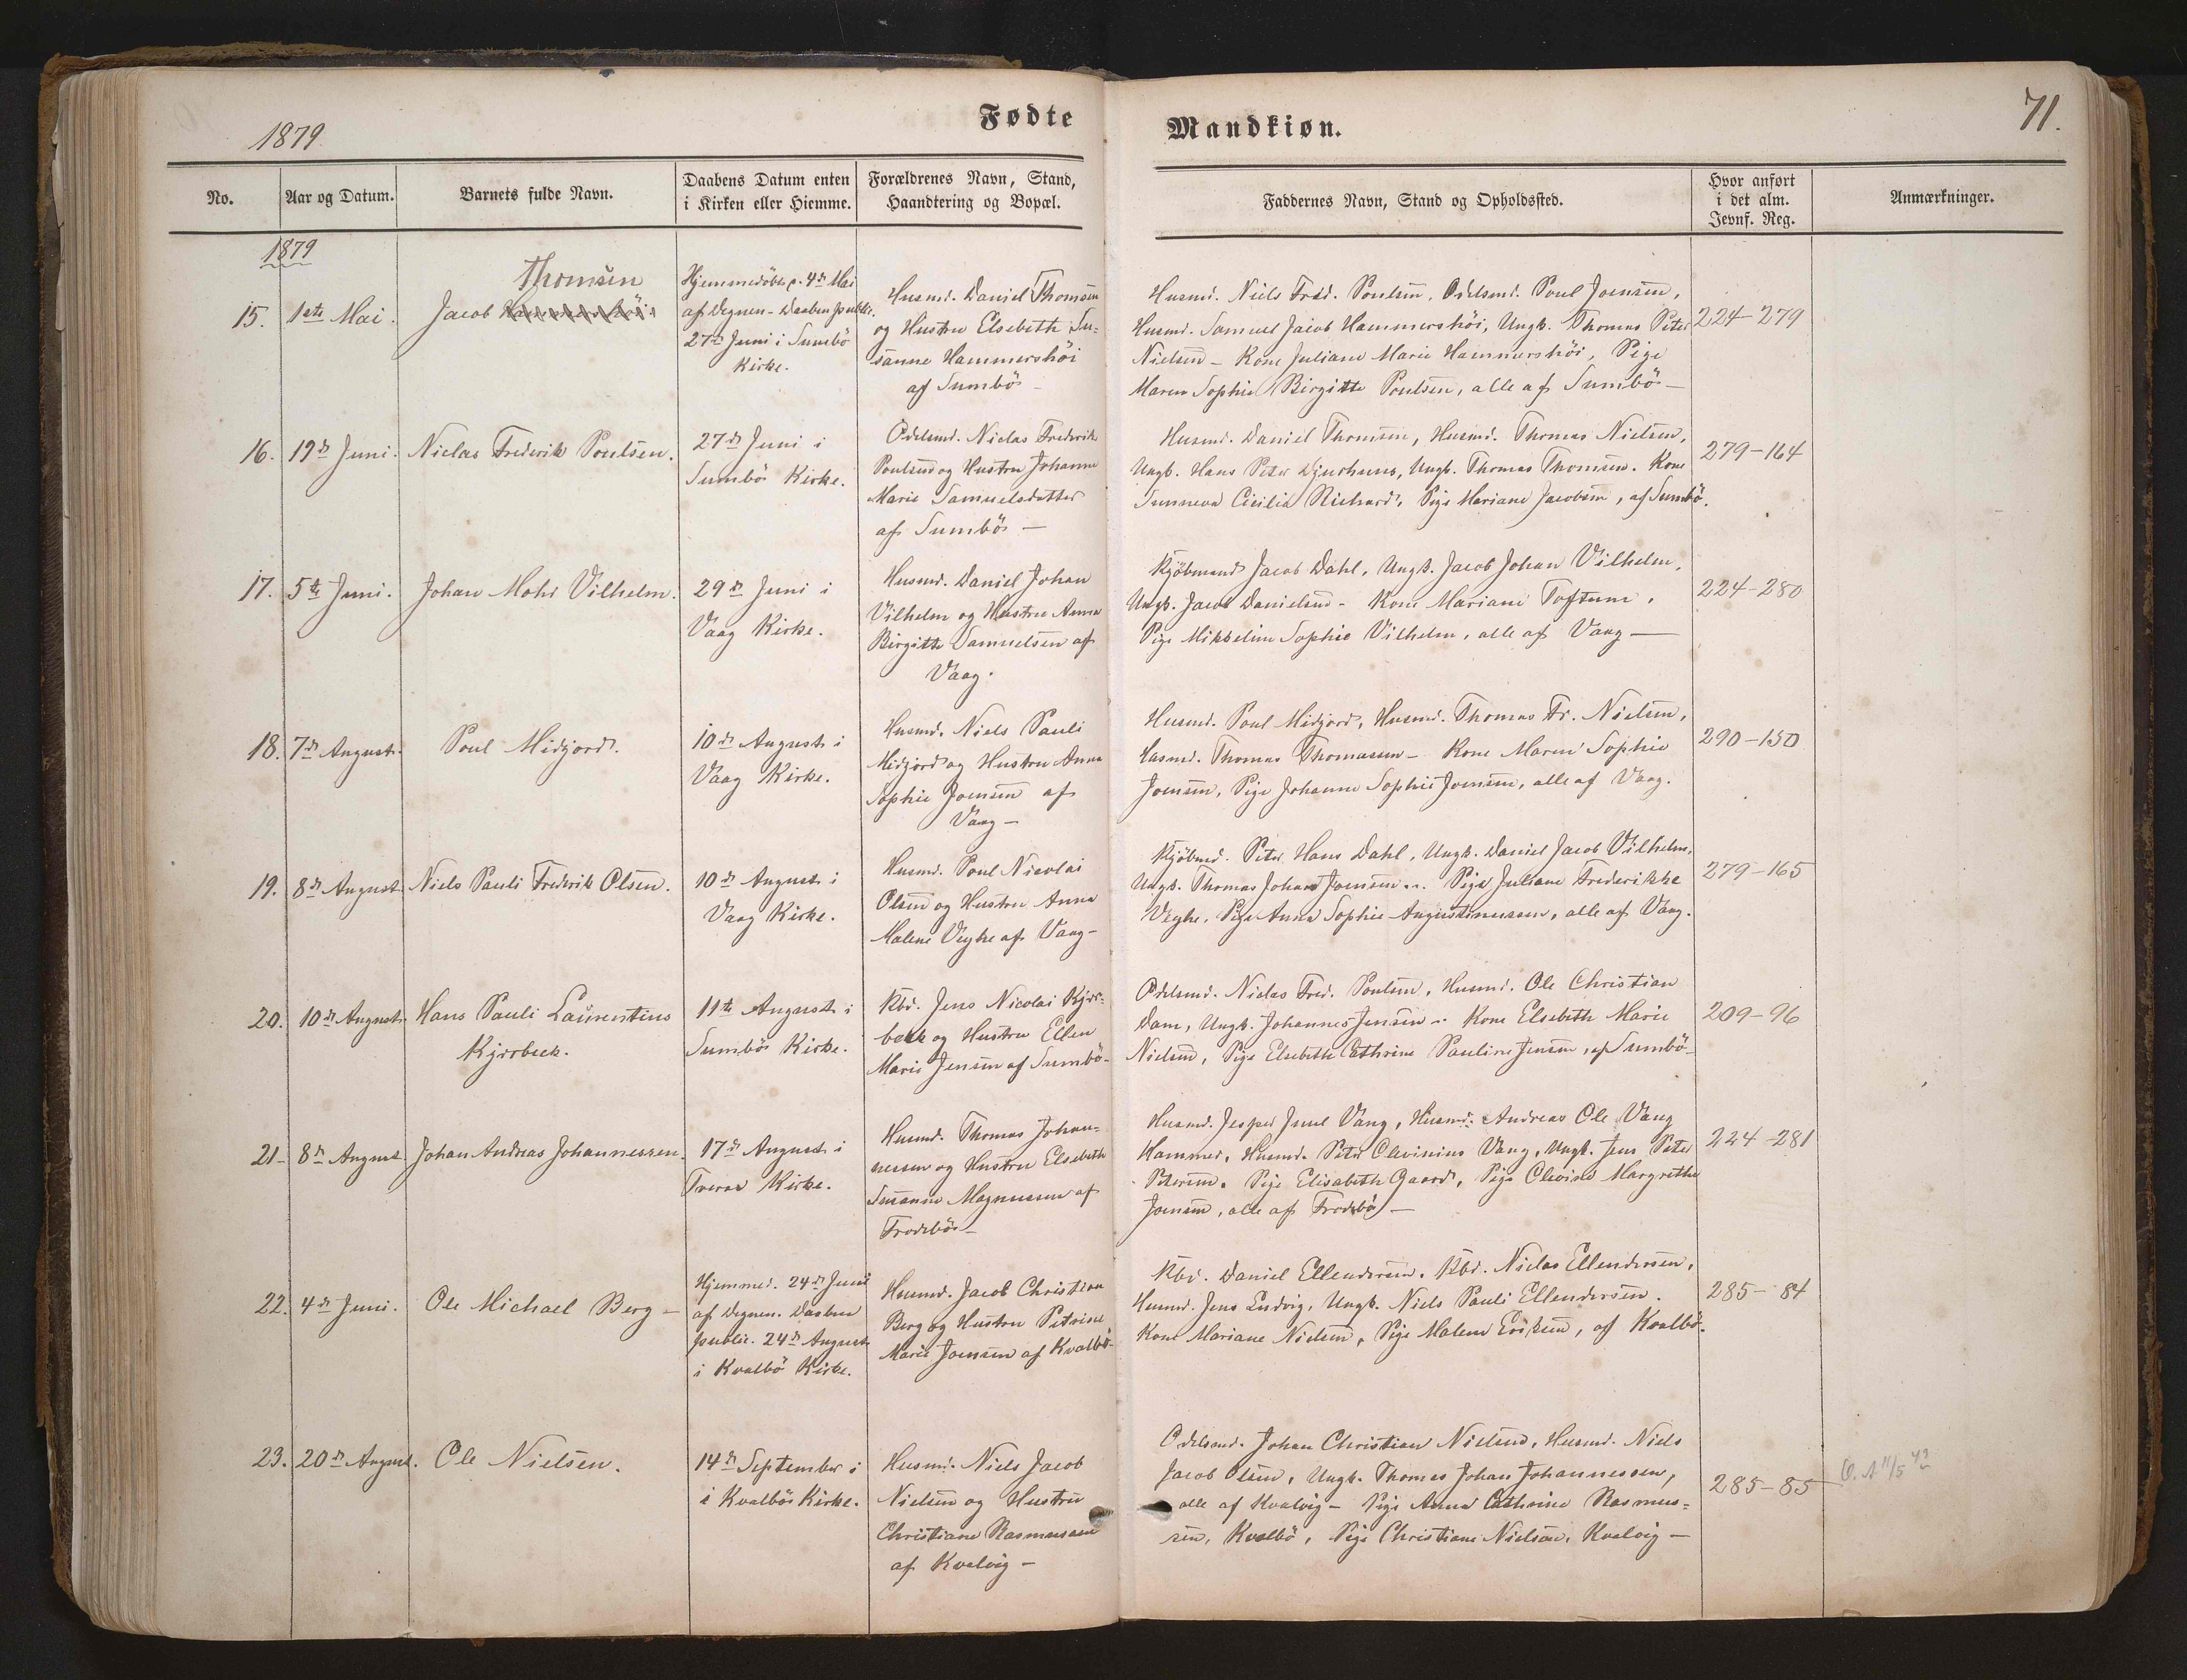 1879
Fødte
Mandkiøn.
71.
No.
Aar og Datum.
Barnets fulde Navn.
Daabens Datum enten
i Kirken eller Hiemme.
Forældrenes Navn, Stand,
Haandtering og Bopæl.
Faddernes Navn, Stand og Opholdssted.
Hvor anført
i det alm.
Jevnf. Reg.
Anmærkninger.
1879
15.
1ste Mai.
Thomsen
Jacob Hammershöi
Hjemmedöbt p. 4de Mai
af Degnen - Daaben public.
27de Juni i Sumbö
Kirke.
Husmd. Daniel Thomsen
og Hustru Elsebeth Su-
sanne Hammershöi
af Sumbö -
Husmd. Niels Fred. Poulsen, Odelsmd. Poul Joensen,
Husmd. Samuel Jacob Hammershöi, Ungk. Thomas Peter
Nielsen - Kone Juliane Marie Hammershöi, Pige
Maren Sophie Birgitte Poulsen, alle af Sumbö -
224-279
16.
19de Juni.
Niclas Frederik Poulsen.
27de Juni i
Sumbö Kirke.
Odelsmd. Niclas Frederik
Poulsen og Hustru Johanne
Marie Samuelsdatter
af Sumbö -
Husmd. Daniel Thomsen, Husmd. Thomas Nielsen,
Ungk. Hans Peter Djurhuus, Ungk. Thomas Thomsen. Kone
Sunneva Cicilia Richard, Pige Mariane Jacobsen, af Sumbö.
279-164
17.
5te Juni.
Johan Mohr Vilhelm.
29de Juni i
Vaag Kirke.
Husmd. Daniel Johan
Vilhelm og Hustru Anna
Birgitte Samuelsen af
Vaag.
Kjöbmand Jacob Dahl, Ungk. Jacob Johan Vilhelm,
Ungk. Jacob Danielsen - Kone Mariane Toftum,
Pige Mikkeline Sophie Vilhelm, alle af Vaag -
224-280
18.
7de August.
Poul Midjord.
10de August i
Vaag Kirke.
Husmd. Niels Pauli
Midjord og Hustru Anna
Sophie Joensen af
Vaag -
Husmd. Poul Midjord, Husmd. Thomas Fr. Nielsen,
Husmd. Thomas Thomasen - Kone Maren Sophie
Joensen, Pige Johanne Sophie Joensen, alle af Vaag.
290-150
19.
8de August.
Niels Pauli Frederik Olsen.
10de August i
Vaag Kirke.
Husmd. Poul Nicolai
Olsen og Hustru Anna
Malene Veyhe af Vaag -
Kjöbmd. Peter Hans Dahl, Ungk. Daniel Jacob Vilhelm,
Ungk. Thomas Johan Joensen - Pige Juliane Frederikke
Veyhe, Pige Anna Sophie Augustinussen, alle af Vaag.
279-165
20.
10de August.
Hans Pauli Laurentius
Kjrsbeck.
11te August i
Sumbö Kirke.
Kbd. Jens Nicolai Kjrs-
beck og Hustru Ellen
Marie Jensen af Sumbö -
Odelsmd. Niclas Fred. Poulsen, Husmd. Ole Christian
Dam, Ungk. Johannes Jensen - Kone Elsebeth Marie
Nielsen, Pige Elsebeth Cathrine Pauline Jensen, af Sumbö -
209-96
21-
8de August
Johan Andreas Johannessen.
17de August i
Tveraa Kirke.
Husmd. Thomas Johan-
nessen og Hustru Elsebeth
Susanne Magnussen af
Frodebö -
Husmd. Jesper Juul Vang, Husmd. Andreas Ole Vang
Hammer, Husmd. Peter Clevinius Vang, Ungk. Jens Peter
Petersen. Pige Elisabeth Gaard, Pige Clevine Margrethe
Joensen, alle af Frodebö -
224-281
22.
4de Juni.
Ole Michael Berg -
Hjemmed. 24de Juni
af Degnen. Daaben
public. 24de August
i Kvalbö Kirke.
Husmd. Jacob Christian
Berg og Hustru Petrine
Marie Joensen af Kvalbö -
Kbd. Daniel Ellendersen, Kbd. Niclas Ellendersen,
Husmd. Jens Ludvig, Ungk. Niels Pauli Ellendersen.
Kone Mariane Nielsen, Pige Malene Eriksen, af Kvalbö -
285-84
23.
20de August.
Ole Nielsen.
14de September i
i Kvalbö Kirke.
Husmd. Niels Jacob
Nielsen og Hustru
Christiane Rasmussen
af Kvalvig -
Odelsmd. Johan Christian Nielsen, Husmd. Niels
Jacob Olsen, Ungk. Thomas Johan Johannessen,
alle af Kvalvig - Pige Anna Cathrine Rasmus-
sen, Kvalbö, Pige Christiane Nielsen, Kvalvig -
285-85
11/5 49